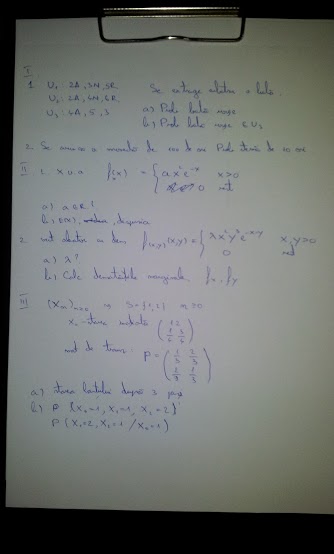 I
1. U₁: 2A, 3N, 5R. Se extrage aleator o bila.
U₂: 2A, 4N, 6R, a) Prob. bila roșie
U₃: 4A, 5, 3 b) Prob bila roșie ∈ U₃
2. Se arunca o moneda de ori de ori Prob de ori
II 1. X v.a f(x) = { a x² e^-x x>0
0 rest
a) a ∈ R?
b) E(x), dispersia
2. vect aleator cu dens f(x,y)(x,y) = { λx²y³e^-x-y x,y>0
0 rest
a) λ?
b) Calc densitățile marginale fx, fy
III (Xn)n≥0 S={1,2} n≥0
X₀ - starea initiala
mat de trans: P = (1/3 2/3
2/3 1/3)
a) starea lantului după 3 pași
b) P {X₀=1, X₁=1, X₂=2}
P (X₂=2, X₁=1 / X₀=1)